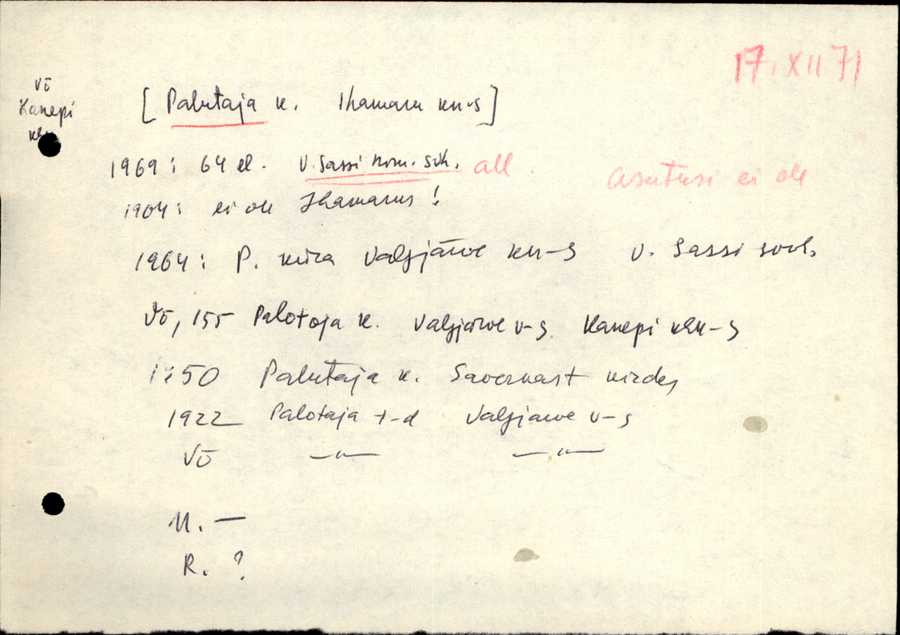 17. XII 71
Võ
Kanepi
khk
[Palutaja k. Ihamaru kn-s]
1969: 64 el. V. Sassi nom. svh. all
asutusi ei ole
1904: ei ole Ihamarus!
1964: P. küla Valgjärve kn-s V. Sassi sovh.
Võ, 155 Palotaja k. Valgjärve v-s Kanepi khk-s
1750 Palutaja k. Savernast kirdes
1922 Palotaja t-d Valgjärve v-s
Võ —"— —"—
M. —
R. ?